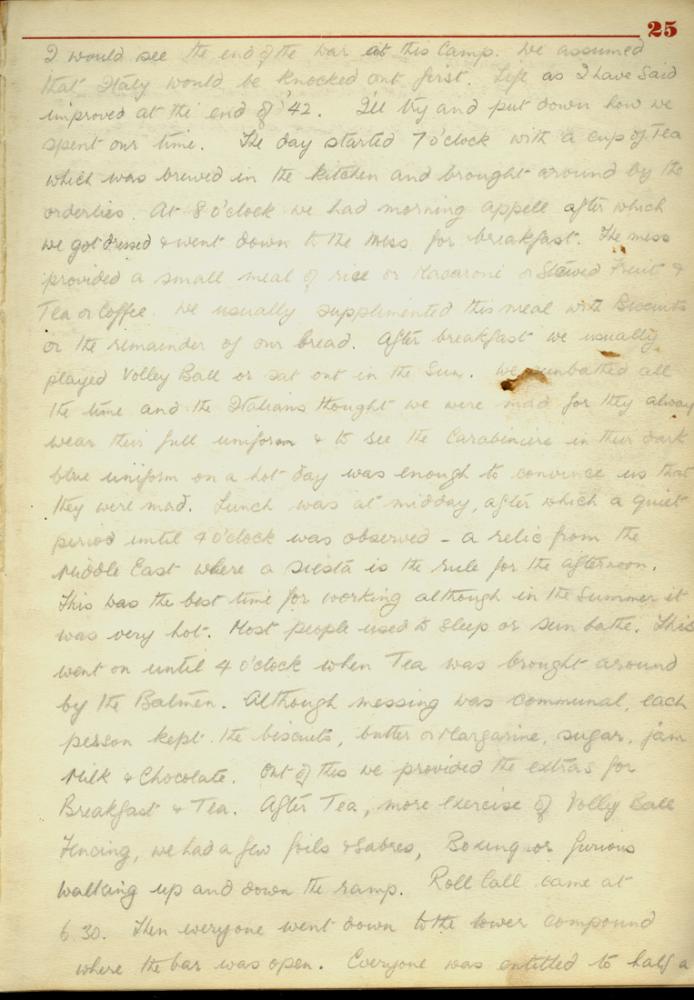 25
I would see the end of the war at this Camp. We assumed
that Italy would be knocked out first. Life as I have said
improved at the end of '42. I'll try and put down how we
spent our time. The day started 7 o'clock with a cup of Tea
which was brewed in the kitchen and brought around by the
orderlies. At 8 o'clock we had morning appell after which
we got dressed & went down to the Mess for breakfast. The mess
provided a small meal of rice or Macaroni or Stewed Fruit &
Tea or Coffee. We usually supplimented this meal with Biscuits
or the remainder of our bread. After breakfast we usually
played Volley Ball or sat out in the Sun. We sunbathed all
the time and the Italians thought we were mad for they always
wear their full uniform & to see the Carabiniere in their dark
blue uniform on a hot day was enough to convince us that
they were mad. Lunch was at midday, after which a quiet
period until 4 o'clock was observed - a relic from the
Middle East where a siesta is the rule for the afternoon.
This was the best time for working although in the Summer it
was very hot. Most people used to sleep or sun bathe. This
went on until 4 o'clock when Tea was brought around
by the Batmen. Although messing was communal, each
person kept the biscuits, butter or Margarine, sugar, jam
Milk & Chocolate. Out of this we provided the extras for
Breakfast & Tea. After Tea, more exercise of Volley Ball
Fencing, we had a few foils & Sabres, Boxing or furious
walking up and down the ramp. Roll Call came at
6.30. Then everyone went down to the lower compound
where the bar was open. Everyone was entitled to half a